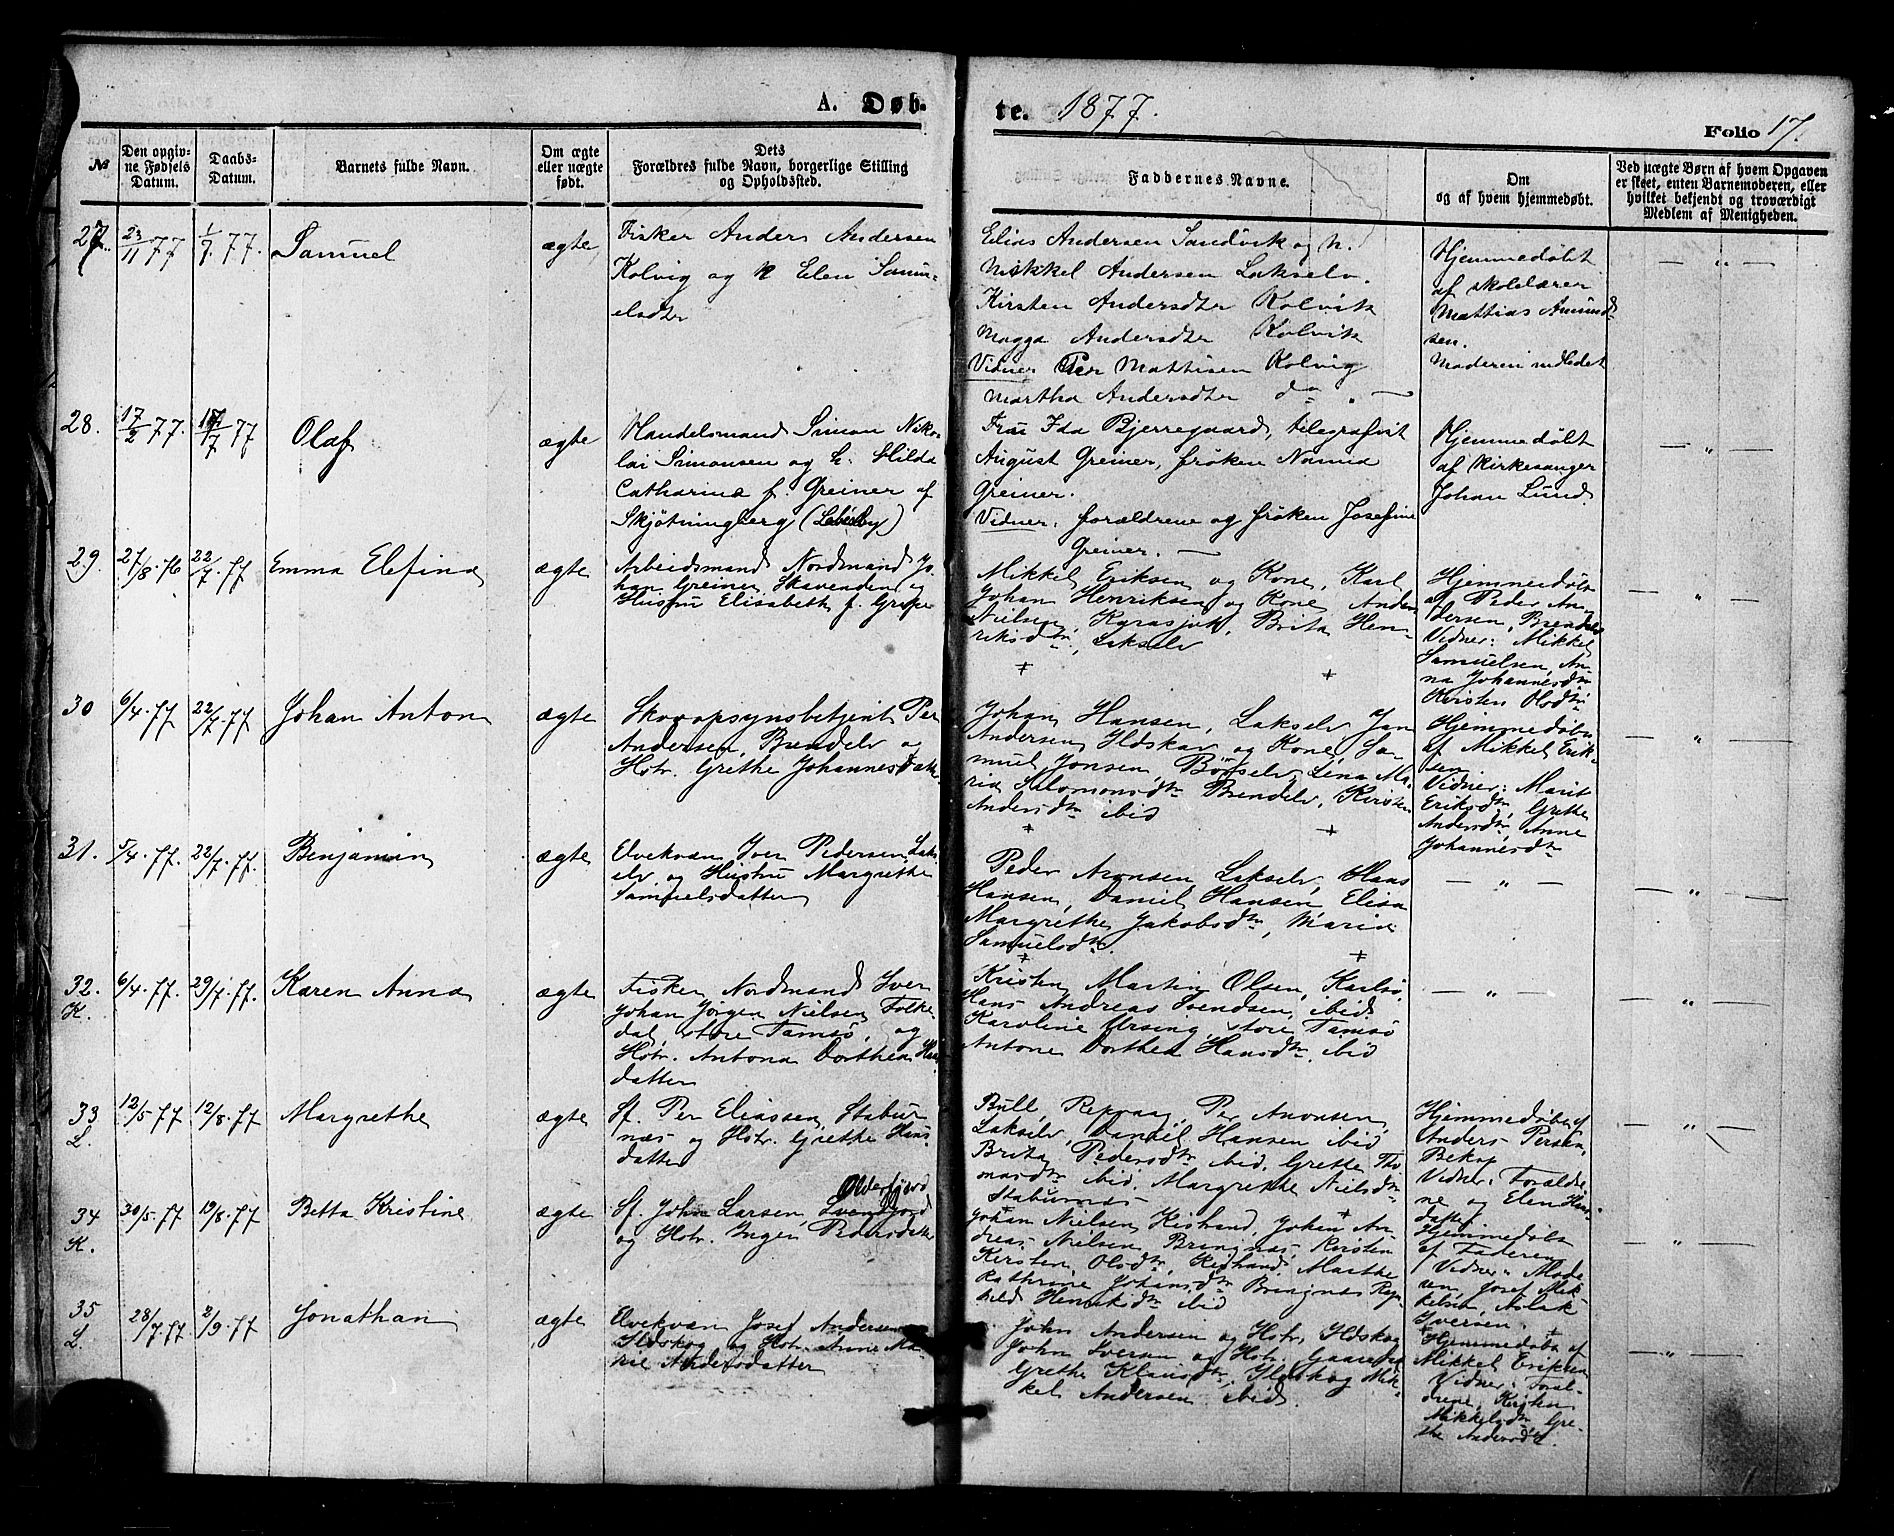 A. Døb-
te. 1877.
Folio 17.
№
Den opgiv-
ne Fødsels
Datum.
Daabs-
Datum.
Barnets fulde Navn.
Om ægte
eller uægte
født.
Dets
Forældres fulde Navn, borgerlige Stilling
og Opholdsted.
Faddernes Navne.
Om
og af hvem hjemmedøbt.
Ved uægte Børn af hvem Opgaven
er skeet, enten Barnemoderen, eller
hvilket bekjendt og troværdigt
Medlem af Menigheden.
27.
23/11 77
1/7. 77.
Samuel
ægte
Fisker Anders Andersen
Kolvig og h Elen Samu-
elsdter
Elias Andersen Sandvik og h.
Mikkel Andersen Lakselv.
Kirsten Andersdter Kolvik
Magga Andersdter Kolvik
Vidner Per Mattisen Kolvig
Martha Andersdter do „ —
Hjemmedøbt
af skolelærer
Mattias Amund-
sen.
Moderen indledet
— „ —
28.
17/2 77.
/7 77
Olaf
ægte
Handelsmand Simon Niko-
lai Simonsen og h. Hilda
Catharina f. Greiner af
Skjøtningberg (Lebesby)
Fru Ida Bjerregaard, telegrafist
August Greiner, frøken Nanna
Greiner.
Vidner: forældrene og frøken Josefine
Greiner. —
Hjemmedøbt
af Kirkesanger
Johan Lund
— „ —
29.
27/8. 76
22/7. 77
Emma Elefina
ægte
Arbeidsmand Nordmand Jo-
han Greiner, Skavenden og
Hustru Elisabeth f. Grape
Mikkel Eriksen og Kone, Karl
Johan Henriksen og Kone, Anders
Nielsen, Kyrasjok, Brita Hen-
riksdtr, Lakselv
Hjemmedøbt
af Peder An-
dersen, Brendelv
Vidner: Mikkel
Samuelsen, An-
na Johannesdtr
Kirsten Olsdtr
— „ —
30
6/4. 77
22/7. 77
Johan Anton
ægte
Skovopsynsbetjent Per
Andersen, Brendelv og
Hstr. Grethe Johannesdatter
Johan Hansen, Lakselv Jan
Andersen, Ildskav og Kone, Sa-
muel Jonsen, Børselv, Lena Ma-
ria Salomonsdtr Brendelv, Kirsten
Andersdtr ibid
Hjemmedøbt
af Mikkel Erik-
sen
Vidner: Marit
Eriksdtr, Grethe
Andersdtr, Anne
Johannesdtr
— „ —
31.
5/4. 77.
22/7. 77.
Benjamin
ægte
Elvekvæn Iver Pedersen, Laks-
elv og Hustru Margrethe
Samuelsdatter
Peder Aronsen Lakselv, Hans
Hansen, Daniel Hansen Elisa
Margrethe Jakobsdtr, Maria
Samuelsdtr.
— „ —
— „ —
32.
K.
6/4. 77.
29/7. 77.
Karen Anna
ægte
Fisker, Nordmand Iver
Johan Jørgen Nielsen, Folke-
dal, store Tamsø, og
Hstr. Antona Dorthea Hans
datter
Kristen Martin Olsen, Karlsø,
Hans Andreas Svendsen, ibid.
Karoline Ursing, store Tamsø
Antone Dorthea Hansdtr. ibid
— „ —
— „ —
33
L.
12/5. 77
12/8. 77
Margrethe
ægte
Sf. Per Eliassen, Stabur-
næs og Hstr. Grethe Hans-
datter
Bull, Repvaag, Per Aronsen,
Lakselv, Daniel Hansen ibid
Brita Pedersdtr ibid. Grethe Tho-
masdtr ibid. Margrethe Nielsdtr
Staburnæs
Hjemmedøbt af
Anders Persen,
Vidner: Foreldre-
ne og Elen Hans-
datter
— „ —
34
K.
30/5. 77
19/8. 77
Betta Kristine
ægte
Olderfjord
Sf. John Larsen,
og Hstr. Inger Pedersdatter
Johan Nielsen, Kistrand, Johan An-
dreas Nielsen, Bringnæs, Kirsten
Kirsten Olsdtr, Kistrand, Marthe
Kathrine Johansdtr Bringnæs
Henriksdtr ibid
Hjemmedøbt
af Faderen
Vidner: Mode-
ren, Josef Mik-
kelsen, Aslak
Iversen.
— „ —
35
L.
28/7. 77
2/9. 77
Jonathan
ægte
Elvekvæn Josef Andersen
Ildskog og Hstr. Anne Ma-
rie Andersdatter
John Andersen og Hstr, Ildskog
John Iversen og Hstr.
Grethe Klausdtr, Ildskog Mik-
kel Andersen ibid.
Hjemmedøbt af
Mikkel Eriksen
Vidner: Forel-
drene, Kirsten
Mikkelsdtr Gre-
the Andersdtr.
— „ —